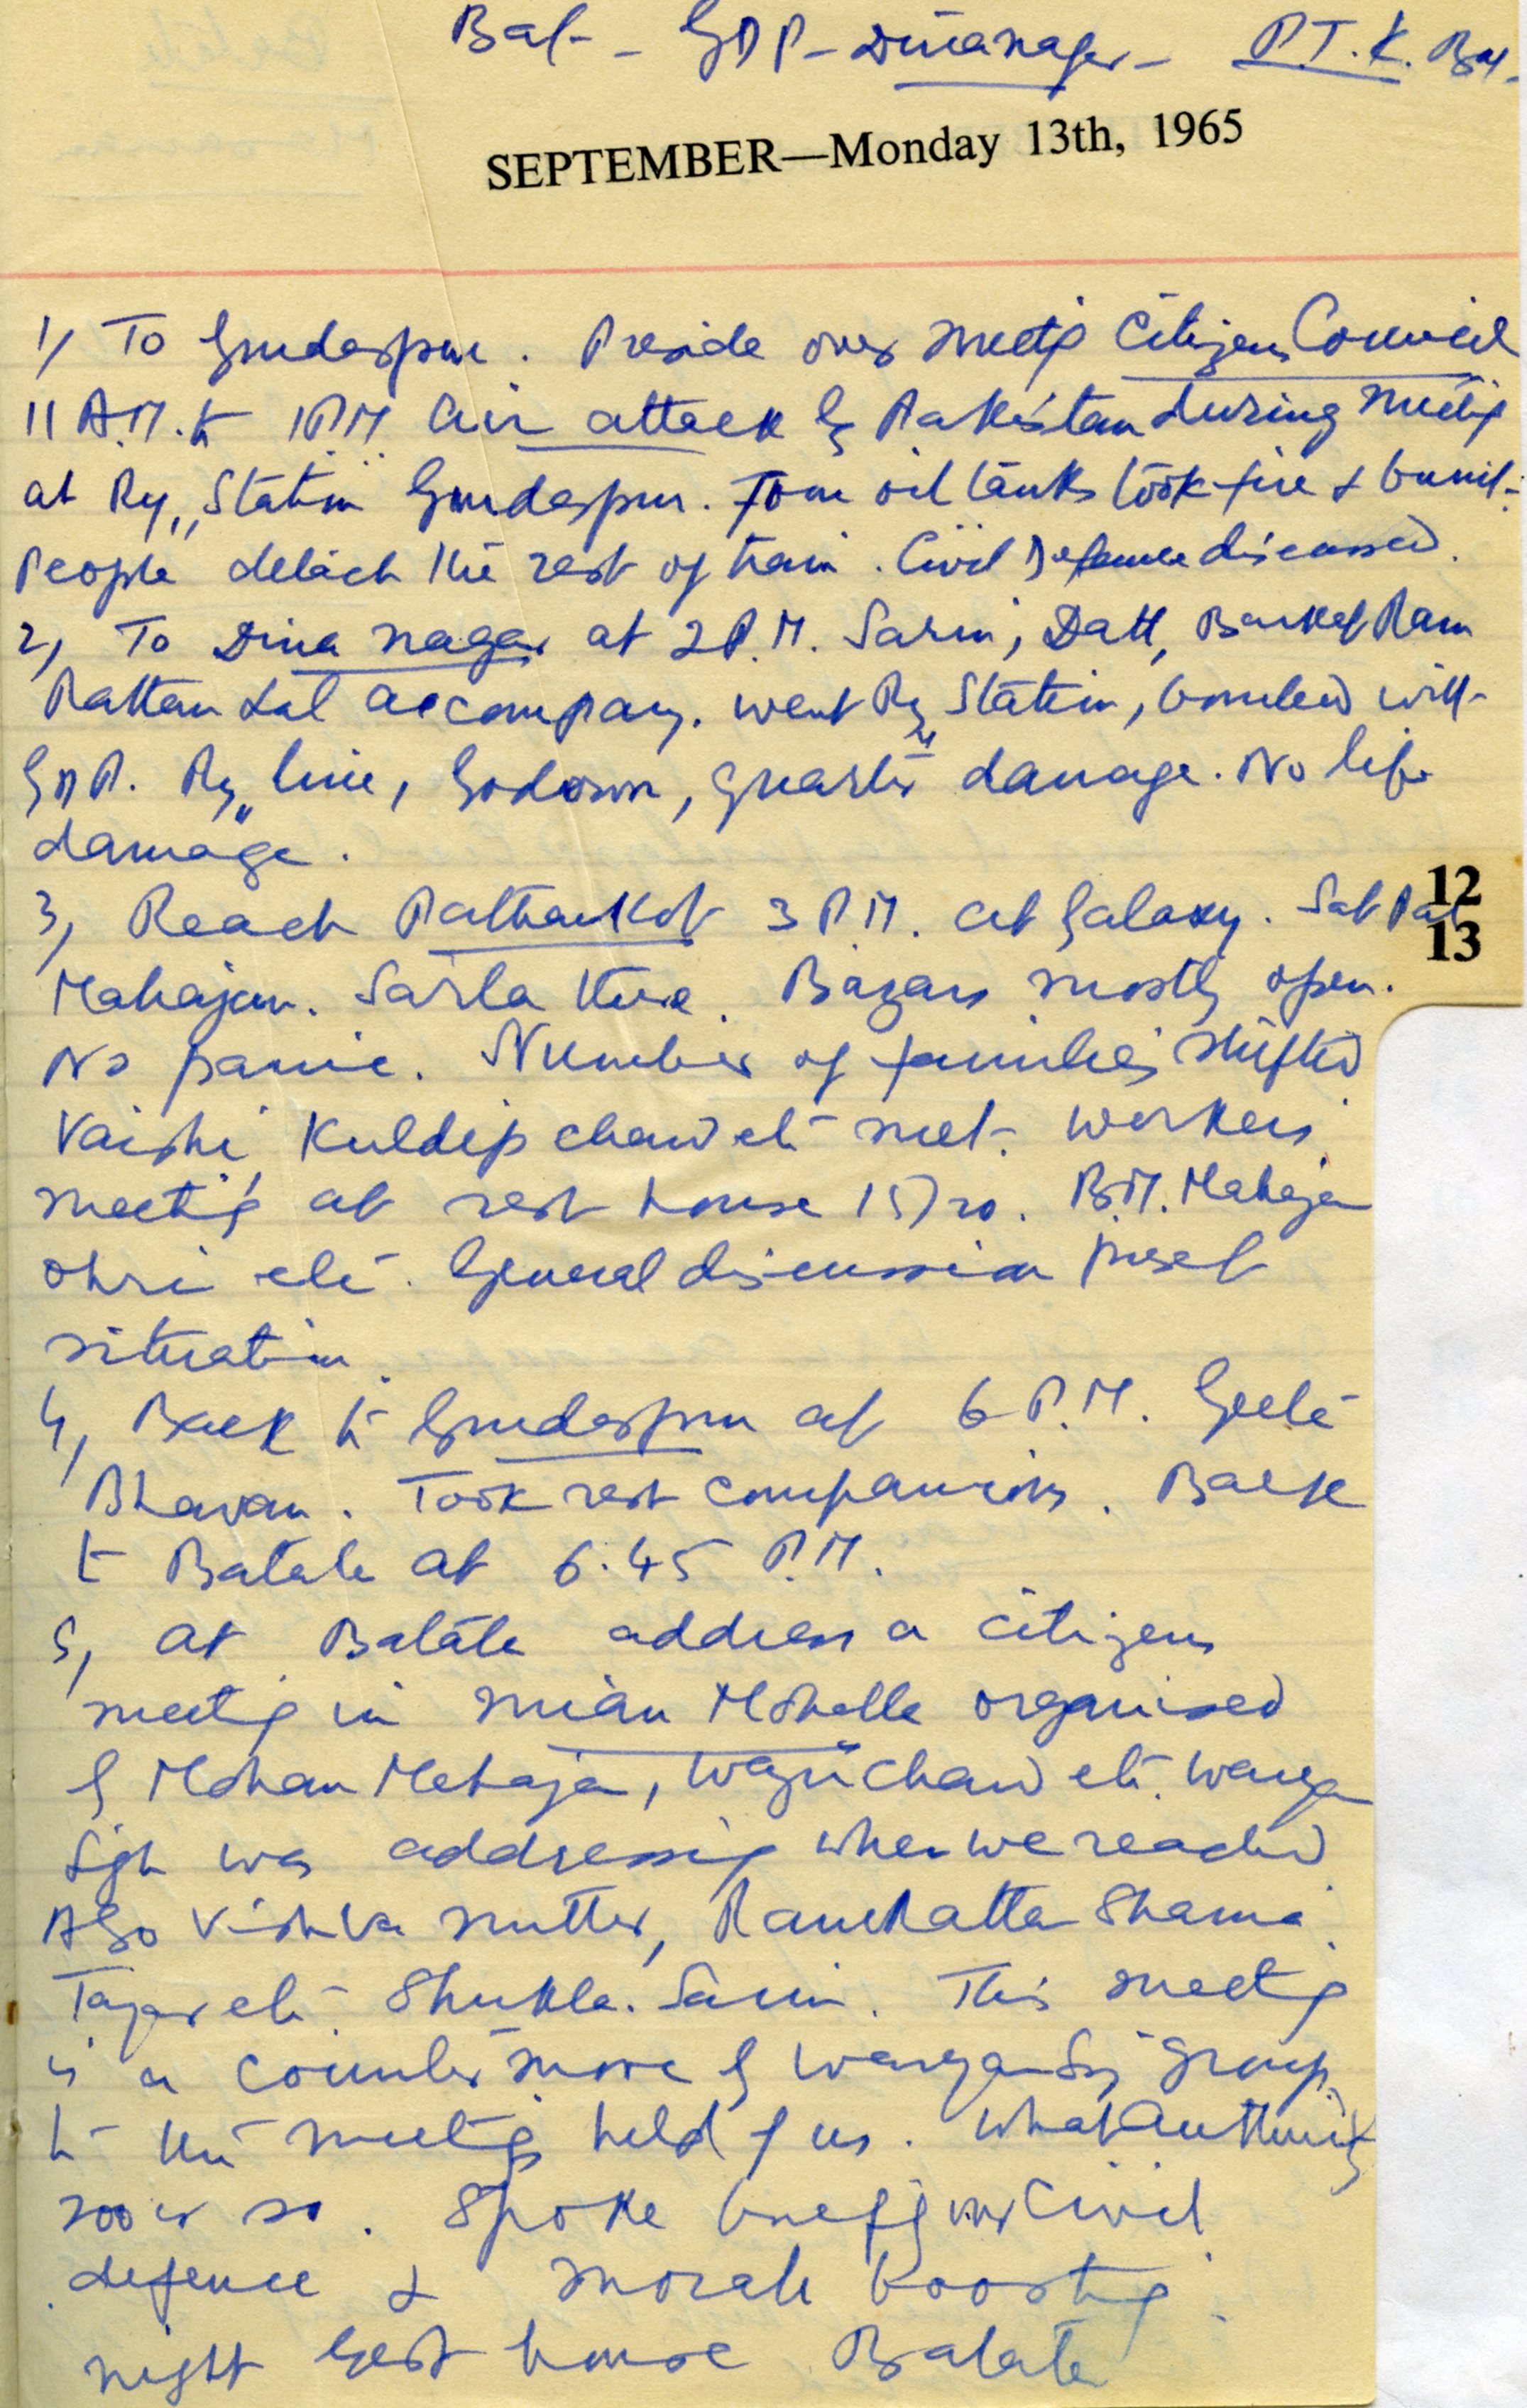 Bat - GDP - Dinanagar - P.T.K. Bat -
SEPTEMBER—Monday 13th, 1965
1) To Gurdaspur. Preside over meetg Citizens Council
11 A.M. to 1 P.M. Air attack by Pakistan during meetig
at Ry. Station Gurdaspur. Four oil tanks took fire & burnt -
People detach the rest of train. Civil Defence discussed.
2) To Dina nagar at 2 P.M. Sarin, Datt, Barkat Ram
Rattan Lal accompany. went Ry Station, bombed with
GDP. Ry line, Godown, quarter damage. No life
damage.
3) Reach Pathankot 3 P.M. at Galaxy. Sat Pal
Mahajan. Sarla there. Bazars mostly open.
12
13
No panic. Number of families shifted
Vaishi, Kuldip chand etc met. workers
meetig at rest house 15/20. B.M. Mahajan
Ohri etc. General discussion preset
situation.
4) Back to Gurdaspur at 6 P.M. Geeta
Bhavan. Took rest companions. Back
to Batala at 6.45 P.M.
5) at Batala address a citizens
meetig in mian Mohalla organised
by Mohan Mahajan, Wazir Chand etc.
Sigh was addressig when we reached
Also Vishva mitter, Ram Rattan Sharma
etc. Shukla. Sarin. This meetig
is a counter move by group
to the meetigs held by us. What Authority
or so. Spoke briefly over Civil
defence & morale boostig.
night Gest house Batala